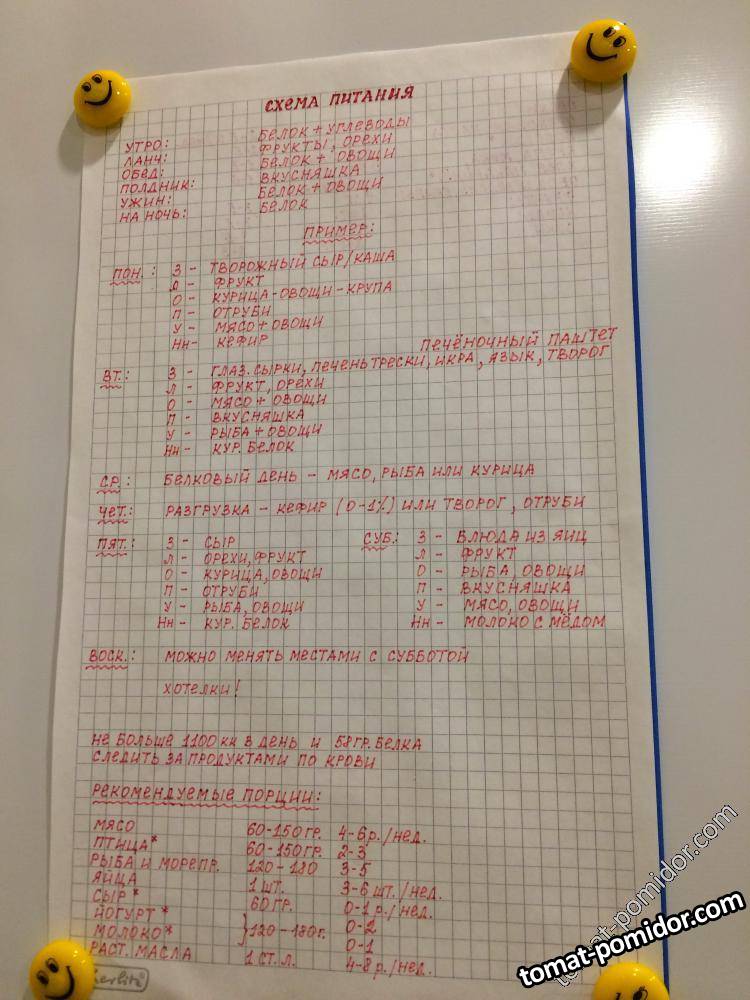 СХЕМА ПИТАНИЯ
УТРО: БЕЛОК + УГЛЕВОДЫ
ЛАНЧ: ФРУКТЫ, ОРЕХИ
ОБЕД: БЕЛОК + ОВОЩИ
ПОЛДНИК: ВКУСНЯШКА
УЖИН: БЕЛОК + ОВОЩИ
НА НОЧЬ: БЕЛОК
ПРИМЕР:
ПОН.: З - ТВОРОЖНЫЙ СЫР/КАША
Л - ФРУКТ
О - КУРИЦА-ОВОЩИ-КРУПА
П - ОТРУБИ
У - МЯСО+ОВОЩИ
Нн- КЕФИР
ПЕЧЁНОЧНЫЙ ПАШТЕТ
ВТ.: З - ГЛАЗ. СЫРКИ, ПЕЧЕНЬ ТРЕСКИ, ИКРА, ЯЗЫК, ТВОРОГ
Л - ФРУКТ, ОРЕХИ
О - МЯСО + ОВОЩИ
П - ВКУСНЯШКА
У - РЫБА + ОВОЩИ
Нн - КУР. БЕЛОК
СР.: БЕЛКОВЫЙ ДЕНЬ - МЯСО, РЫБА ИЛИ КУРИЦА
ЧЕТ.: РАЗГРУЗКА - КЕФИР (0-1%) ИЛИ ТВОРОГ, ОТРУБИ
ПЯТ.: З - СЫР
Л - ОРЕХИ, ФРУКТ
О - КУРИЦА, ОВОЩИ
П - ОТРУБИ
У - РЫБА, ОВОЩИ
Нн - КУР. БЕЛОК
СУБ.: З - БЛЮДА ИЗ ЯИЦ
Л - ФРУКТ
О - РЫБА, ОВОЩИ
П - ВКУСНЯШКА
У - МЯСО, ОВОЩИ
Нн - МОЛОКО С МЁДОМ
ВОСК.: МОЖНО МЕНЯТЬ МЕСТАМИ С СУББОТОЙ
ХОТЕЛКИ!
НЕ БОЛЬШЕ 1100 КК В ДЕНЬ И 58 ГР. БЕЛКА
СЛЕДИТЬ ЗА ПРОДУКТАМИ ПО КРОВИ
РЕКОМЕНДУЕМЫЕ ПОРЦИИ:
МЯСО 60-150 ГР. 4-6 р./НЕД.
ПТИЦА* 60-150 ГР. 2-3
РЫБА И МОРЕПР. 120-180 3-5
ЯЙЦА 1 ШТ. 3-6 ШТ./НЕД.
СЫР* 60 ГР. 0-1 р./НЕД.
ЙОГУРТ* } 120-180 г. 0-2
МОЛОКО* 0-1
РАСТ. МАСЛА 1 СТ. Л. 4-8 р./НЕД.
herlitz
tomat-pomidor.com
tomat-pomidor.com